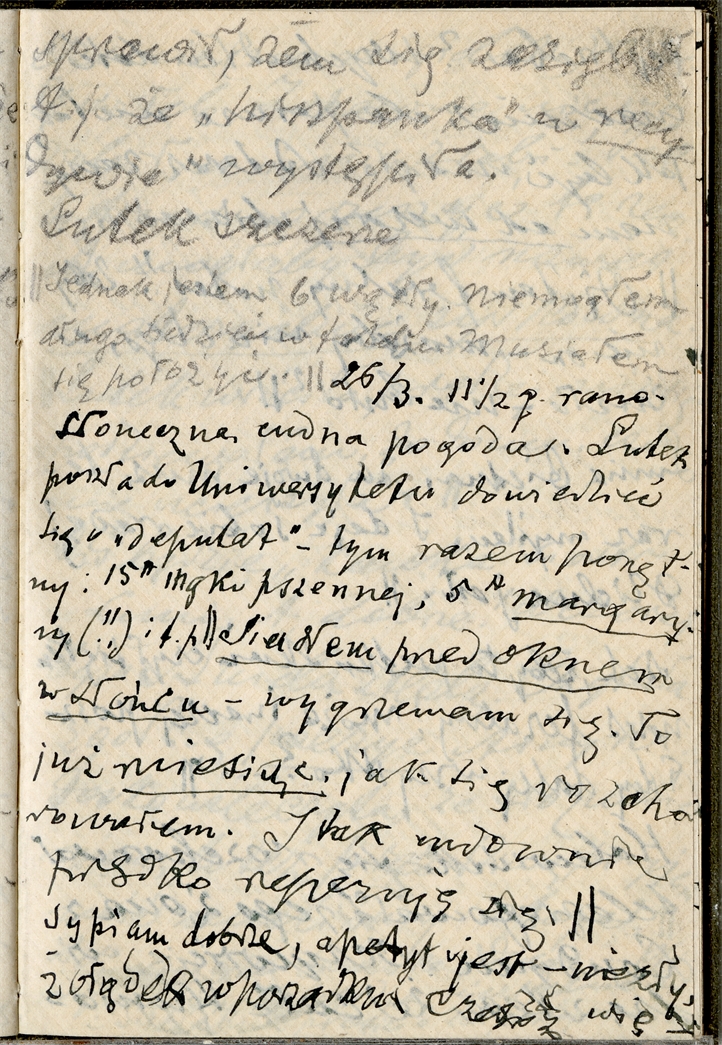 sprawił, żem się zaziębił
t.j. że „hiszpanka" w recy
dywie" wystąpiła.
Lutek szczerze
|| Jednak jestem b. wątły. Niemogłem
długo siedzieć w fotelu. Musiałem
się położyć. || 26/3. 11 1/2 g. rano.
Słoneczna, cudna pogoda. Lutek
poszła do Uniwersytetu dowiedzieć
się o „deputat" – tym razem potęż-
ny: 15 ℔ mąki pszennej, 5 ℔ margary-
ny (!!) i t.p || Siadłem przed oknem
w słońcu – wygrzewam się. To
już miesiąc, jak się rozcho
rowałem. I tak cudownie
prędko reperuję się. ||
Sypiam dobrze, apetyt jest – niezły,
żołądek w porządku. Czegóż więc